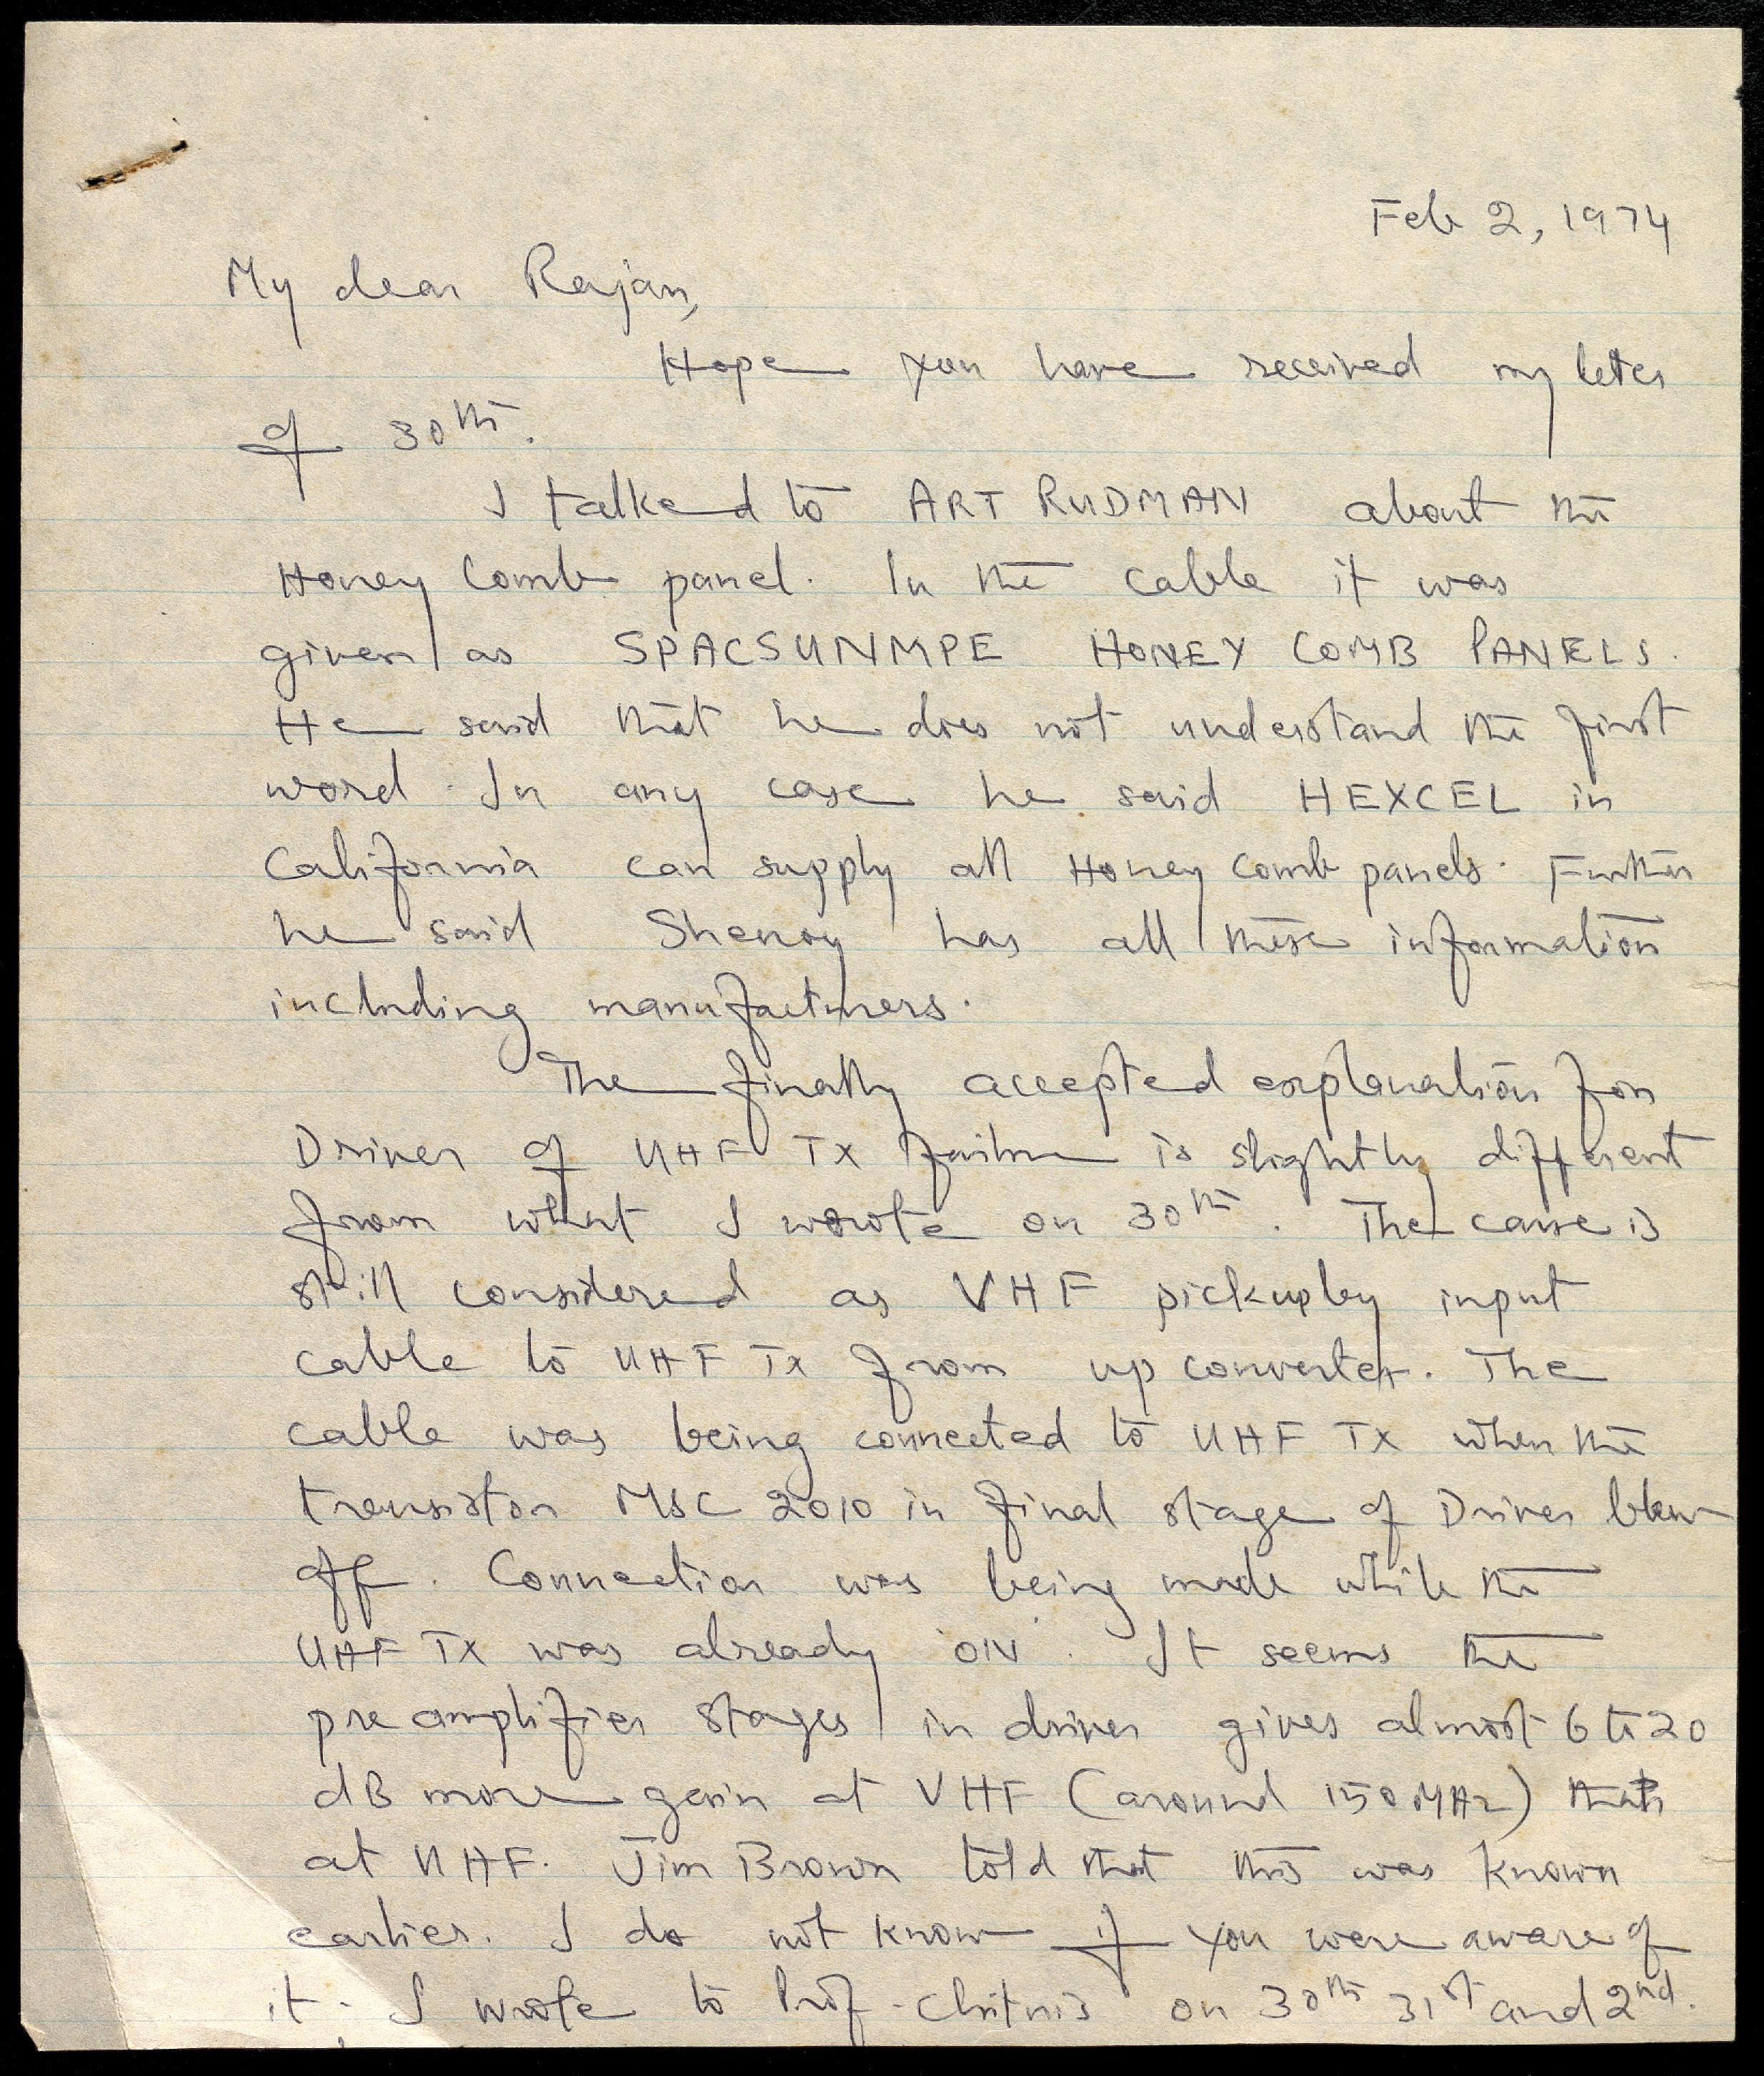 Feb 2, 1974
My dear Rajan,
Hope you have received my leter
of 30th.
I talked to ART RUDMAN about the
Honey Comb panel. In the cable it was
given as SPACSUNMPE HONEY COMB PANELS.
He said that he does not understand the first
word. In any case he said HEXCEL in
California can supply all Honey Comb panels. Further
he said Shenoy has all these information
including manufacturers.
The finally accepted explanation for
Driver of UHF TX failure is slightly different
from what I wrote on 30th. The cause is
still considered as VHF pickup by input
cable to UHF Tx from up converter. The
cable was being connected to UHF TX when the
transistor MSC 2010 in final stage of Driver blew
off. Connection was being made while the
UHF TX was already 'ON'. It seems the
pre amplifier stages in driver gives almost 6 to 20
dB more gain at VHF (around 150 MHz) than
at UHF. Jim Brown told that this was known
earlier. I do not know if you were aware of
it. I wrote to Prof. Chitnis on 30th 31st and 2nd.